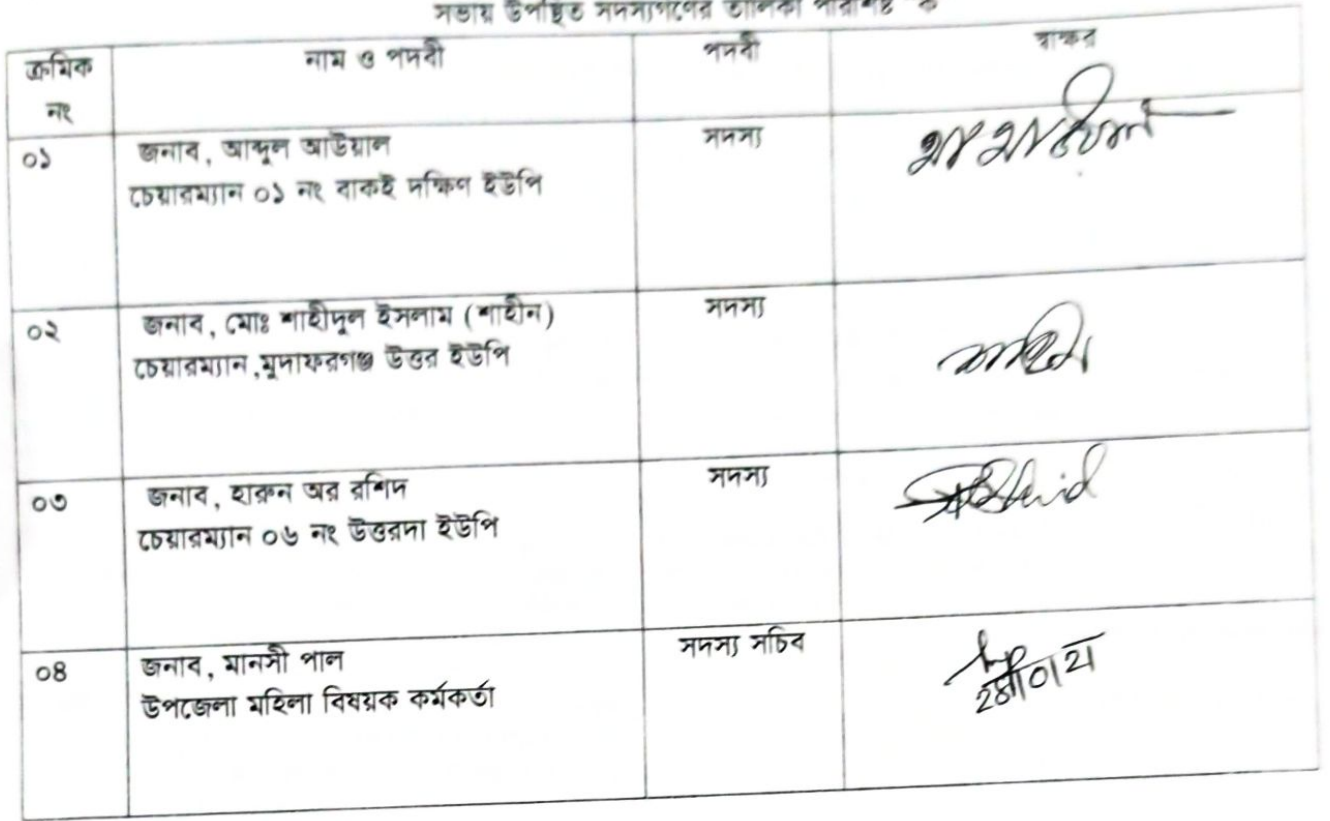 সভায় উপস্থিত সদস্যগণের তালিকা পরিশিষ্ট "ক
ক্রমিক নং
নাম ও পদবী
পদবী
স্বাক্ষর
০১
জনাব, আব্দুল আউয়াল
চেয়ারম্যান ০১ নং বাকই দক্ষিণ ইউপি
সদস্য
০২
জনাব, মোঃ শাহীদুল ইসলাম (শাহীন)
চেয়ারম্যান,মুদাফরগঞ্জ উত্তর ইউপি
সদস্য
০৩
জনাব, হারুন অর রশিদ
চেয়ারম্যান ০৬ নং উত্তরদা ইউপি
সদস্য
০৪
জনাব, মানসী পাল
উপজেলা মহিলা বিষয়ক কর্মকর্তা
সদস্য সচিব